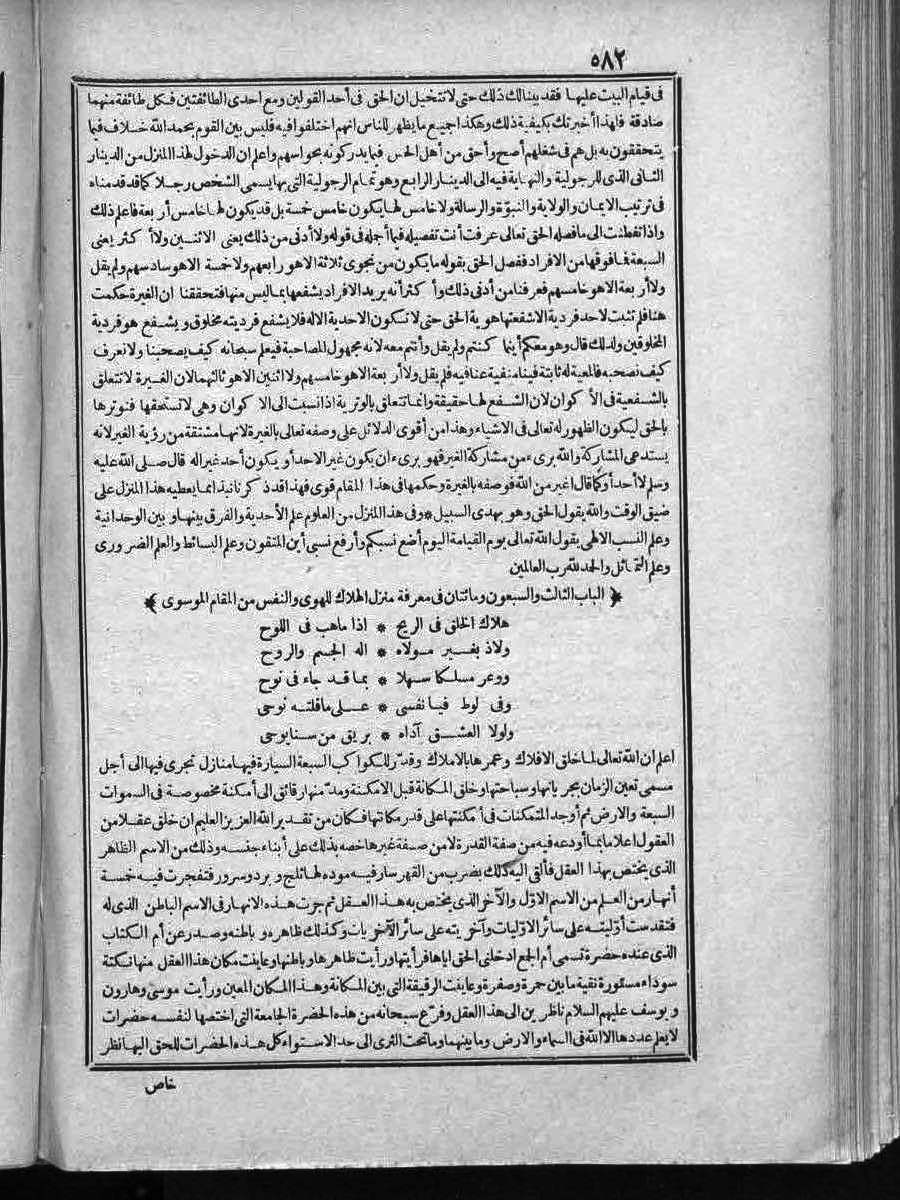 ٥٨٢
فى قيام البيت عليها فقد بينا لك ذلك حتى لا تتخيل ان الحق فى أحد القولين ومع احدى الطائفتين فكل طائفة منهما
صادقة فلهذا أخبرتك بكيفية ذلك وهكذا جميع ما يظهر للناس انهم اختلفوا فيه فليس بين القوم بحمد الله خلاف فيما
يتحققون به بل هم فى شغلهم أصح وأحق من أهل الحس فيما يدركونه بحواسهم واعلم ان الدخول لهذا المنزل من الدينار
الثانى الذى للرجولية والنهاية فيه الى الدينار الرابع وهو تمام الرجولية التى بها يسمى الشخص رجلا كما قد قدمناه
فى ترتيب الايمان والولاية والنبوّة والرسالة ولا خامس لها يكون خامس خمسة بل قد يكون لها خامس أربعة فاعلم ذلك
واذا تفطنت الى ما فصله الحق تعالى عرفت أنت تفصيله فيما أجمله فى قوله ولا أدنى من ذلك يعنى الاثنين ولا أكثر يعنى
السبعة فما فوقها من الافراد ففصل الحق بقوله ما يكون من نجوى ثلاثة الا هو رابعهم ولا خمسة الا هو سادسهم ولم يقل
ولا أربعة الا هو خامسهم فعرفنا من أدنى ذلك وأكثر أنه يريد الافراد يشفعها بما ليس منها فتحققنا ان الغيرة حكمت
هنا فلم تثبت لاحد فردية الا شفعتها هوية الحق حتى لا تكون الاحدية الا له فلا يشفع فرديته مخلوق ويشفع هو فردية
المخلوقين ولذلك قال وهو معكم أينما كنتم ولم يقل وأنتم معه لانه مجهول المصاحبة فيعلم سبحانه كيف يصحبنا ولا نعرف
كيف نصحبه فالمعية له ثابتة فينا منفية عنا فيه فلم يقل ولا أربعة الا هو خامسهم ولا اثنين الا هو ثالثهما لان الغيرة لا تتعلق
بالشفعية فى الأكوان لان الشفع لها حقيقة وانما تتعلق بالوترية اذا نسبت الى الاكوان وهى لا تستحقها فنوترها
بالحق ليكون الظهور له تعالى فى الاشياء وهذا من أقوى الدلائل على وصفه تعالى بالغيرة لانها مشتقة من رؤية الغير لانه
يستدعى المشاركة والله برىء من مشاركة الغير فهو برىء ان يكون غير الاحد أو يكون أحد غيرا له قال صلى الله عليه
وسلم لا أحد أو كما قال اغير من الله فوصفه بالغيرة وحكمها فى هذا المقام قوى فهذا قد ذكرنا نبذا مما يعطيه هذا المنزل على
ضيق الوقت والله يقول الحق وهو يهدى السبيل * وفى هذا المنزل من العلوم علم الأحدية والفرق بينها وبين الوحدانية
وعلم النسب الالهى يقول الله تعالى يوم القيامة اليوم أضع نسبكم وأرفع نسبى أين المتقون وعلم البسائط والعلم الضرورى
وعلم التماثل والحمد لله رب العالمين
﴿ الباب الثالث والسبعون ومائتان فى معرفة منزل الهلاك للهوى والنفس من المقام الموسوى ﴾
هلاك الخلق فى الريح * اذا ماهب فى اللوح
ولاذ بغير مولاه * اله الجسم والروح
ووعر مسلكا سهلا * بما قد جاء فى نوح
وفى لوط فيا نفسى * على ما قلته نوحى
ولولا العشق آداه * بريق من سنا يوحى
اعلم ان الله تعالى لما خلق الافلاك وعمرها بالاملاك وقدّر للكواكب السبعة السيارة فيها منازل تجرى فيها الى أجل
مسمى تعين الزمان بجريانها وسباحتها وخلق المكانة قبل الامكنة ومدّ منها رقائق الى أمكنة مخصوصة فى السموات
السبعة والارض ثم أوجد المتمكنات فى أمكنتها على قدر مكانتها فكان من تقدير الله العزيز العليم ان خلق عقلا من
العقول اعلاما بما أودعه فيه من صفة القدرة لا من صفة غيرها خصه بذلك على أبناء جنسه وذلك من الاسم الظاهر
الذى يختص بهذا العقل فألقى اليه كذلك بضرب من القهر سار فيه مودة لها ثلج وبرد وسرور فتفجرت فيه خمسة
أنهار من العلم من الاسم الاوّل والآخر الذى يختص به هذا العقل ثم جرت هذه الانهار فى الاسم الباطن الذى له
فتقدست أوّليته على سائر الاوّليات وآخريته على سائر الآخريات وكذلك ظاهره وباطنه وصدر عن أم الكتاب
الذى عنده حضرة تسمى أم الجمع ادخلنى الحق اياها فرأيتها ورأيت ظاهرها وباطنها وعاينت مكان هذا العقل منها نكتة
سوداء مستورة نقية ما بين حمرة وصفرة وعاينت الرقيقة التى بين المكانة وهذا المكان المعين ورأيت موسى وهارون
ويوسف عليهم السلام ناظرين الى هذا العقل وفرّع سبحانه من هذه الحضرة الجامعة التى اختصها لنفسه حضرات
لا يعلم عددها الا الله فى السماء والارض وما بينهما وما تحت الثرى الى حد الاستواء كل هذه الحضرات للحق اليها نظر
خاص